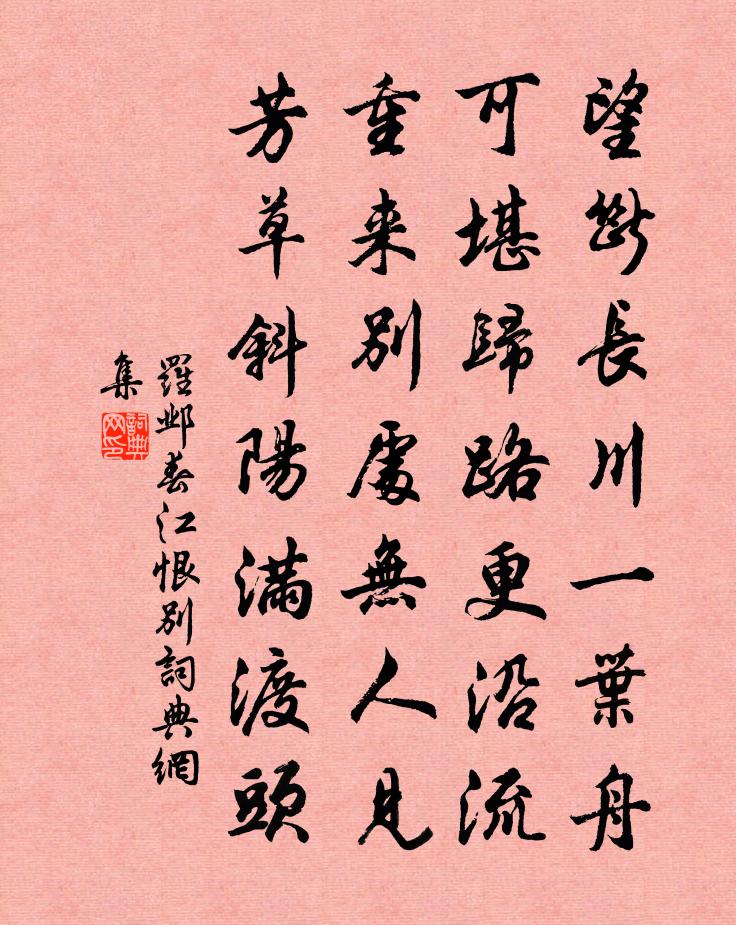 望斷長川一葉舟
可堪歸路更沿流
重来別處無人見
芳草斜陽滿渡頭
羅鄴春江恨別詞典網
集
詞典
网印